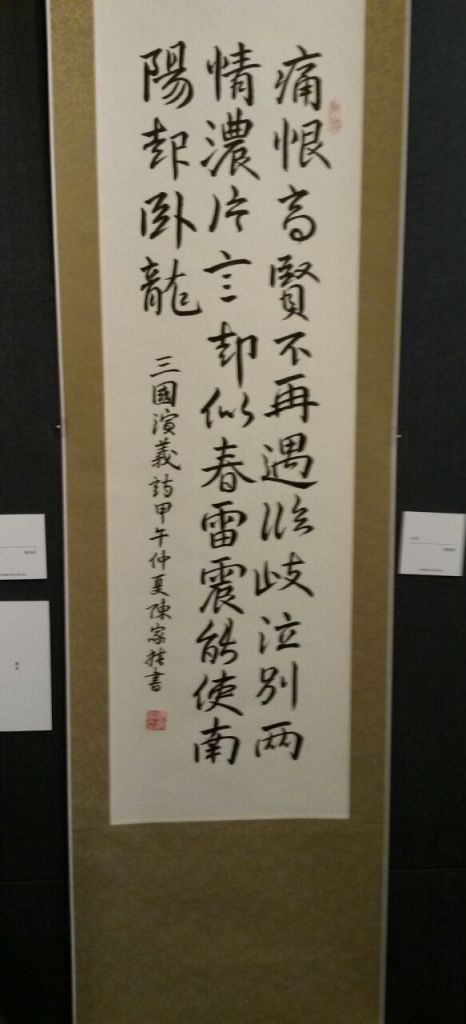 痛恨高賢不再遇臨歧泣別两
情濃片言却似春雷震能使南
陽起卧龍
三國演義詩甲午仲夏陳家書